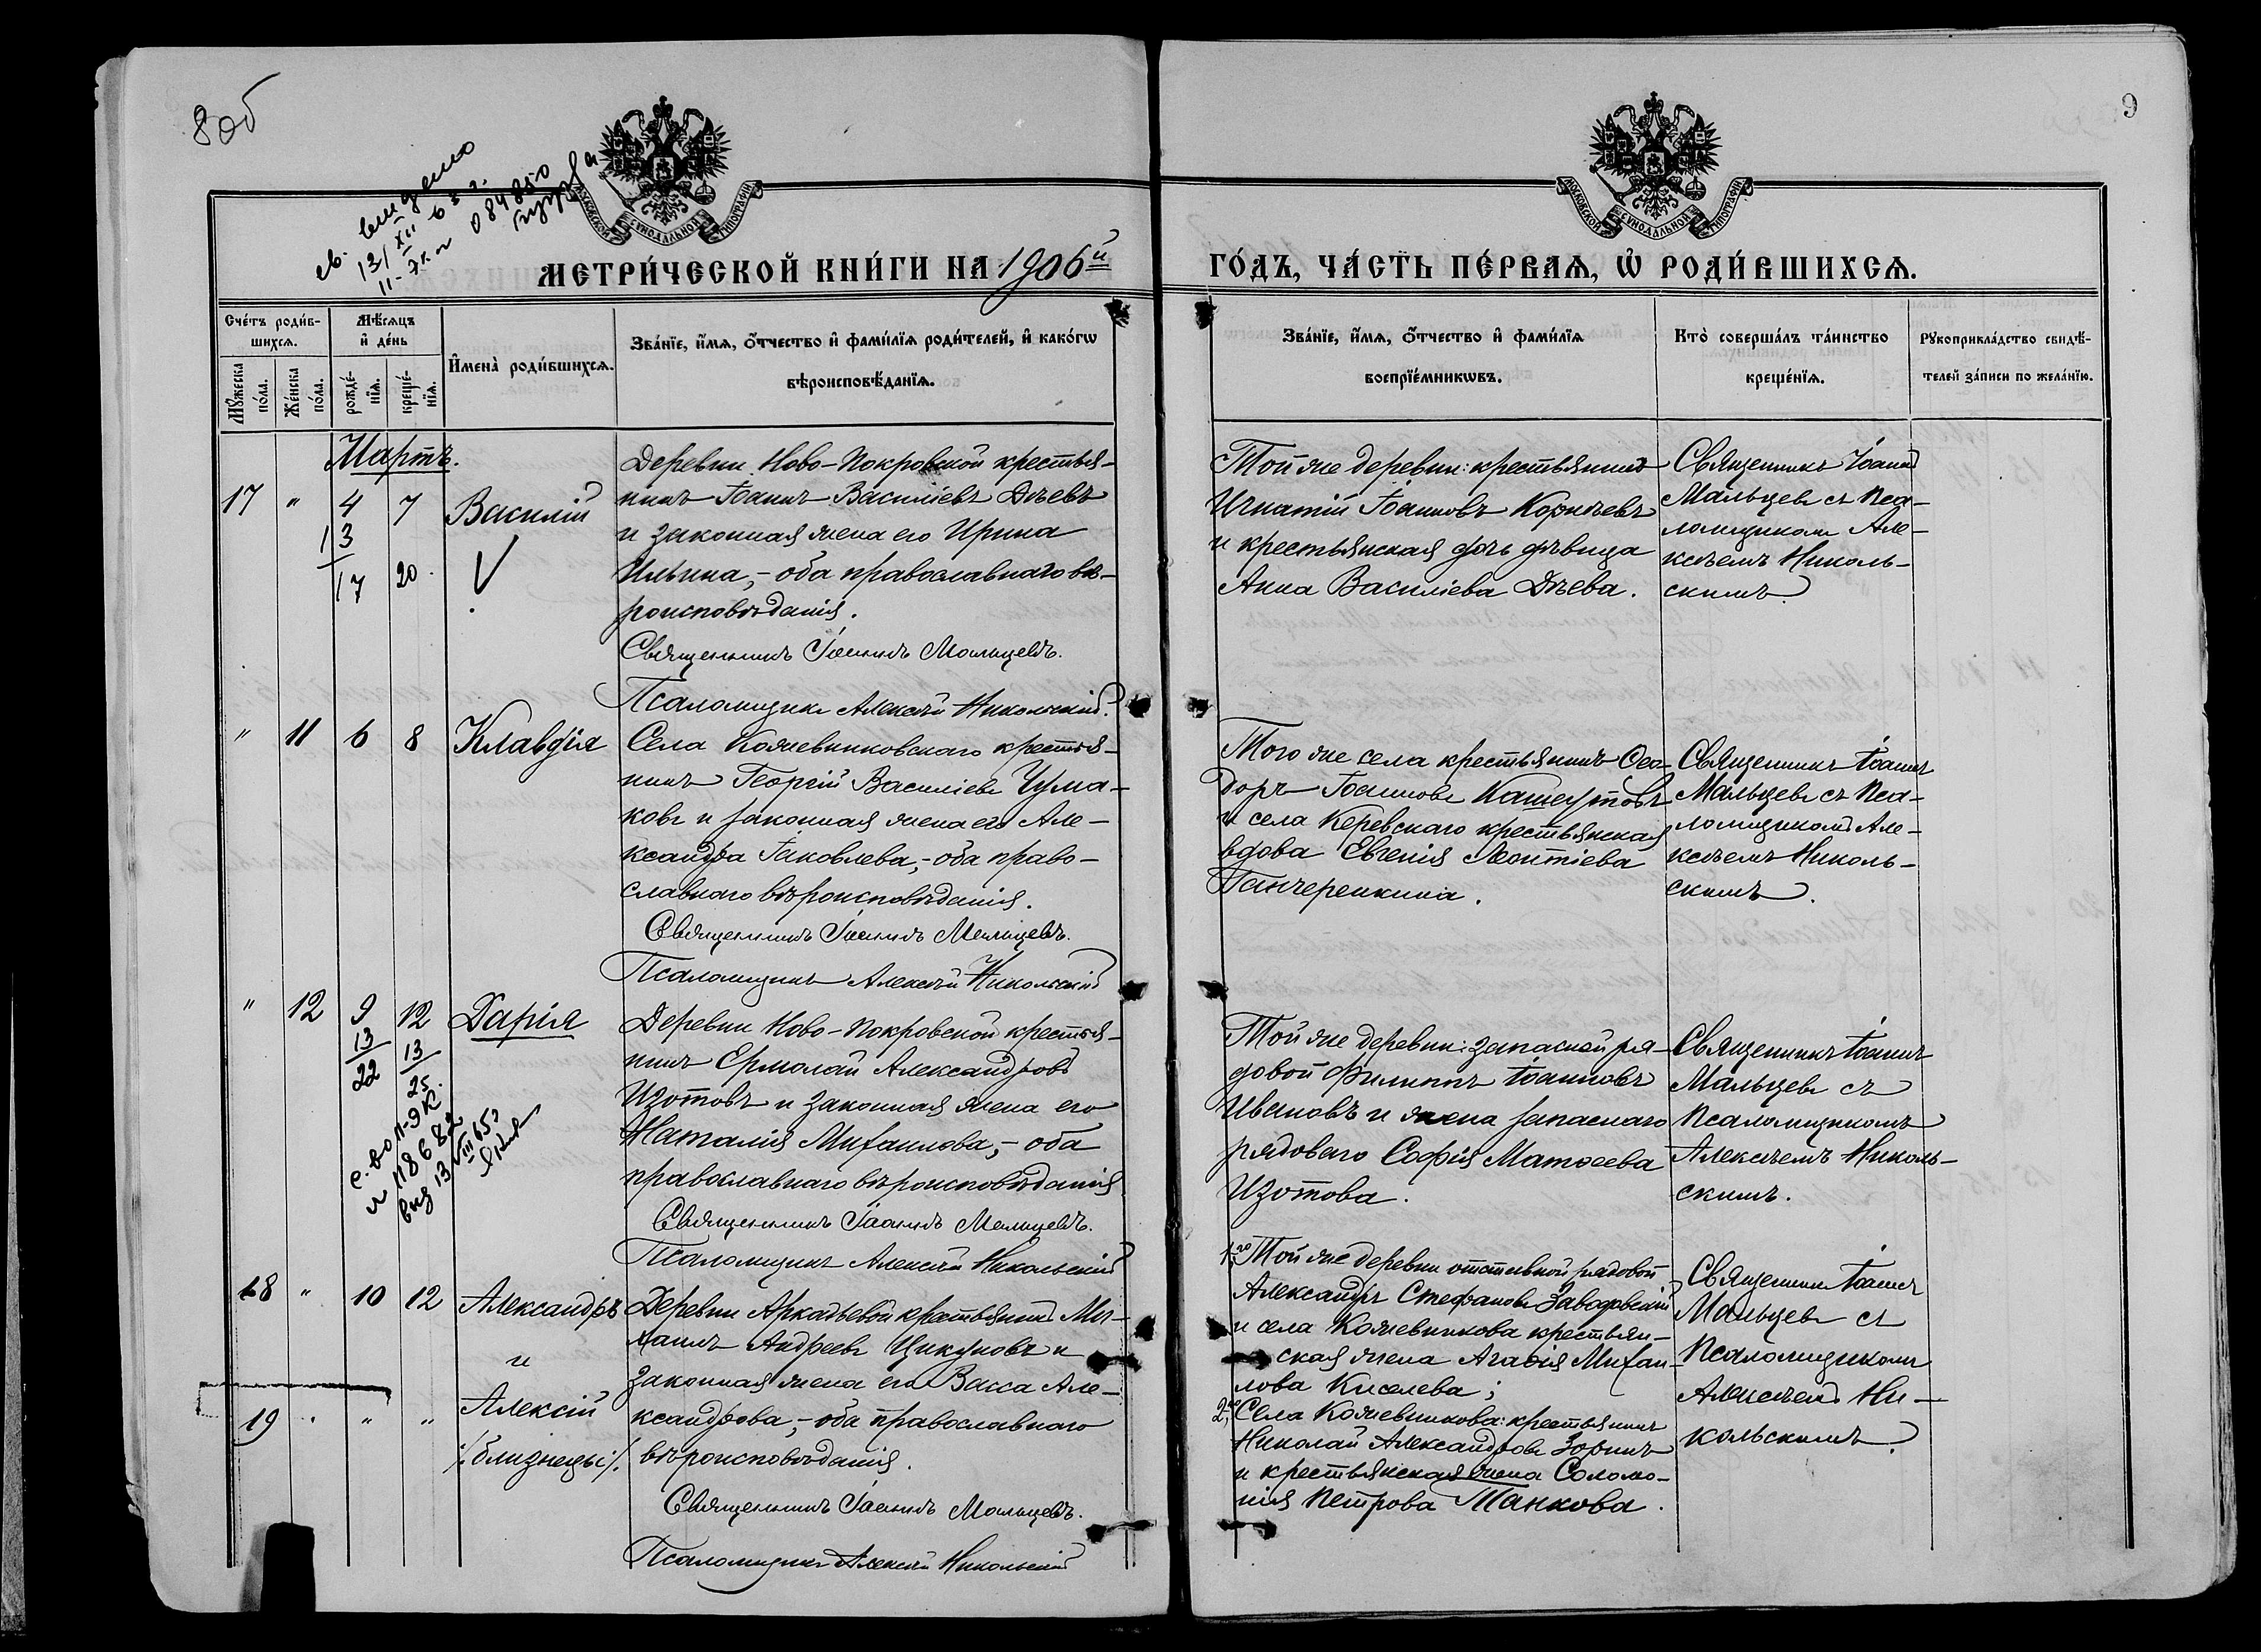 8 об
9
св. выдено
13/XII 63 г.
II-ЭК № 084850
МОСКОВСКОЙ СѴНОДАЛЬНОЙ ТИПОГРАФІИ
МОСКОВСКОЙ СѴНОДАЛЬНОЙ ТИПОГРАФІИ
МЕТРИ́ЧЕСКОЙ КНИ́ГИ НА 1906й
ГО́ДЪ, ЧА́СТЬ ПЕ́РВАѦ, Ѡ҆ РОДИ́ВШИХСѦ.
Сче́тъ роди́в-
шихсѧ.
Мѣ́сѧцъ
и҆ де́нь
И҆мена̀ роди́вшихсѧ.
Зва́нїе, и҆́мѧ, ѻ҆́тчество и҆ фами́лїѧ роди́телей, и҆ како́гѡ
вѣроисповѣ́данїѧ.
Мꙋ́жеска
по́ла.
Же́нска
по́ла.
рожде́-
нїѧ.
креще́-
нїѧ.
Зва́нїе, и҆́мѧ, ѻ҆́тчество и҆ фами́лїѧ
воспрїе́мникѡвъ.
Кто̀ соверша́лъ та́инство
креще́нїѧ.
Рꙋкоприкла́дство свидѣ́-
телей за́писи по жела́нїю.
Мартъ.
17 " 4 7 Василій
13
17 20
Деревни Ново-Покровской крестья-
нинъ Іоаннъ Василіевъ Дѣевъ
и законная жена его Ирина
Ильина, - оба православнаго вѣ-
роисповѣданія.
Священникъ Іоаннъ Мальцевъ.
Псаломщикъ Алексѣй Никольскій.
Той же деревни: крестьянинъ
Игнатій Іоанновъ Корнѣевъ
и крестьянская дочь дѣвица
Анна Василіева Дѣева.
Священникъ Іоаннъ
Мальцевъ съ Пса-
ломщикомъ Але-
ксѣемъ Николь-
скимъ.
" 11 6 8 Клавдія
Села Кожевниковскаго крестья-
нинъ Георгій Василіевъ Чума-
ковъ и законная жена его Але-
ксандра Іаковлева, - оба право-
славнаго вѣроисповѣданія.
Священникъ Іоаннъ Мальцевъ.
Псаломщикъ Алексѣй Никольскій
Того же села крестьянинъ Ѳео-
доръ Іоанновъ Кашеутовъ
и села Керевскаго крестьянская
вдова Евгенія Леонтіева
Ганчеренкина.
Священникъ Іоаннъ
Мальцевъ съ Пса-
ломщикомъ Але-
ксѣемъ Николь-
скимъ.
" 12 9 12 Дарія
13 13
22 25
с. во II-ЭК
№ 118682
выд 13 VIII 65г
Деревни Ново-Покровской крестья-
нинъ Ермолай Александровъ
Изотовъ и законная жена его
Наталія Михаилова, - оба
православнаго вѣроисповѣданія
Священникъ Іоаннъ Мальцевъ.
Псаломщикъ Алексѣй Никольскій
Той же деревни: запасной ря-
довой Филиппъ Іоанновъ
Ивановъ и жена запаснаго
рядоваго Софія Матѳеева
Изотова.
Священникъ Іоаннъ
Мальцевъ съ
Псаломщикомъ
Алексѣемъ Николь-
скимъ.
18 " 10 12 Александръ
и
19 " " " Алексій
/:близнецы:/.
Деревни Аркадьевой крестьянинъ Ми-
хаилъ Андреевъ Цикуновъ и
законная жена его Васса Але-
ксандрова, - оба православнаго
вѣроисповѣданія.
Священникъ Іоаннъ Мальцевъ.
Псаломщикъ Алексѣй Никольскій
1го Той же деревни отставной рядовой
Александръ Стефановъ Заводовскій
и села Кожевникова крестьян-
ская жена Агаѳія Михаи-
лова Киселева;
2го Села Кожевникова: крестьянинъ
Николай Александровъ Зоринъ
и крестьянская жена Соломо-
нія Петрова Танкова.
Священникъ Іоаннъ
Мальцевъ съ
Псаломщикомъ
Алексѣемъ Ни-
кольскимъ.